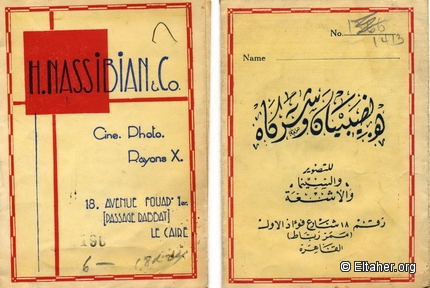 H. NASSIBIAN & Co.
Cine. Photo.
Rayons X.
18, AVENUE FOUAD 1er
[PASSAGE RABBAT]
LE CAIRE
6 —
No.
1413
Name
ه. نصيبيان وشركاه
للتصوير
والسينما
والأشعة
رقم ١٨ شارع فؤاد الأول
(ممر رباط)
القاهرة
© Eltaher.org